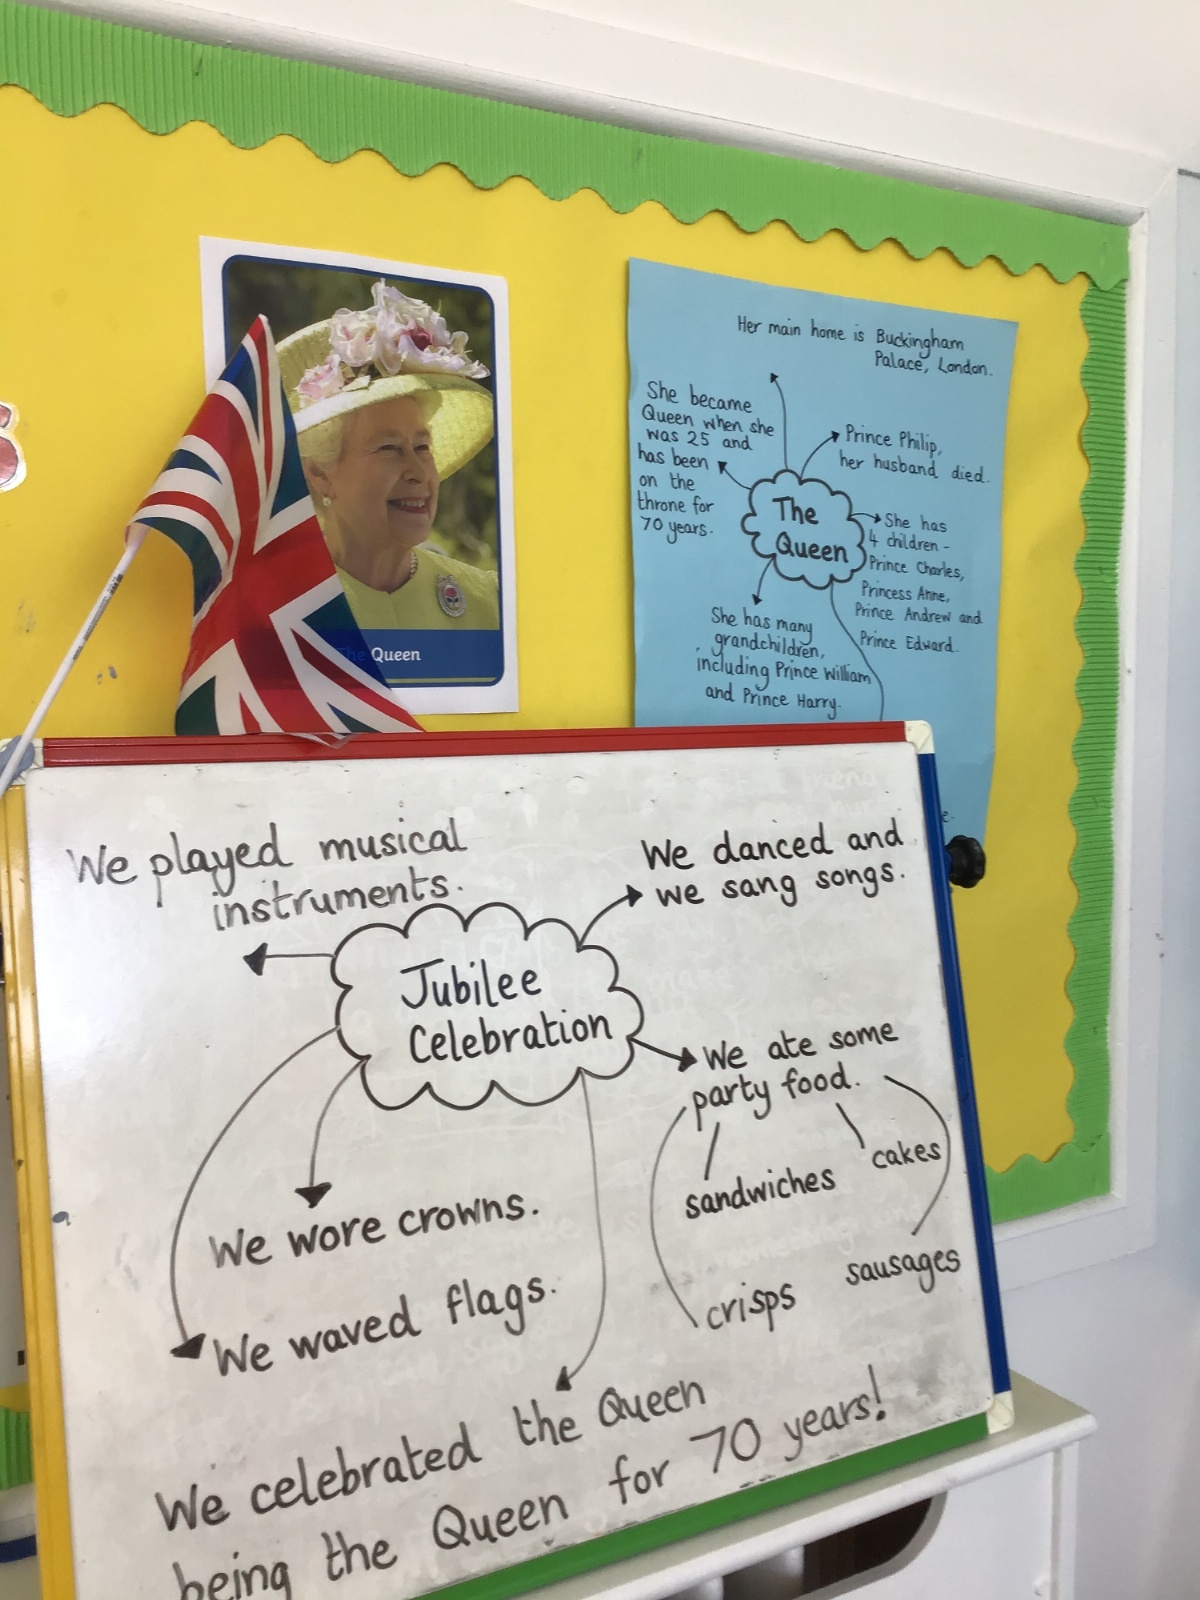 The Queen
Her main home is Buckingham
Palace, London.
She became
Queen when she
was 25 and
has been
on the
throne for
70 years.
Prince Philip,
her husband died.
The
Queen
She has
4 children -
Prince Charles,
Princess Anne,
Prince Andrew and
Prince Edward.
She has many
grandchildren,
including Prince William
and Prince Harry.
We played musical
instruments.
We danced and
we sang songs.
Jubilee
Celebration
We ate some
party food.
sandwiches
cakes
crisps
sausages
We wore crowns.
We waved flags.
We celebrated the Queen
being the Queen for 70 years!